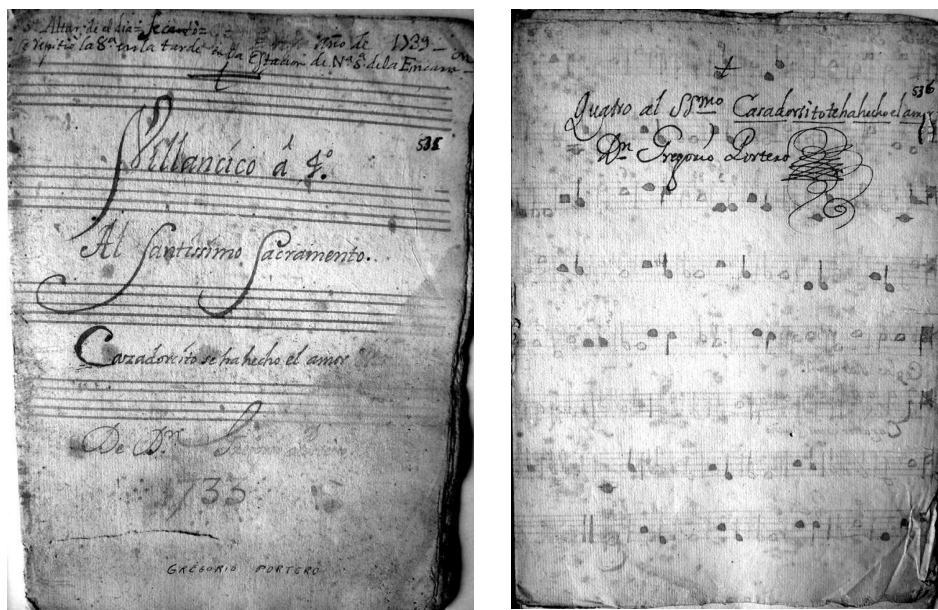 Altar, de el dia= se cantò=
se repitiò la 8ª en la tarde en la Estacion de Nª Sª de la Encarn
año de 1739
535
Villancico à 4º.
Al Santissimo Sacramento.
Cazadorcito se ha hecho el amor
De Dn. Gregorio
1733
GREGORIO PORTERO
536
Quatro al SSmo Cazadorsito se ha hecho el amor
Dn Gregorio Portero